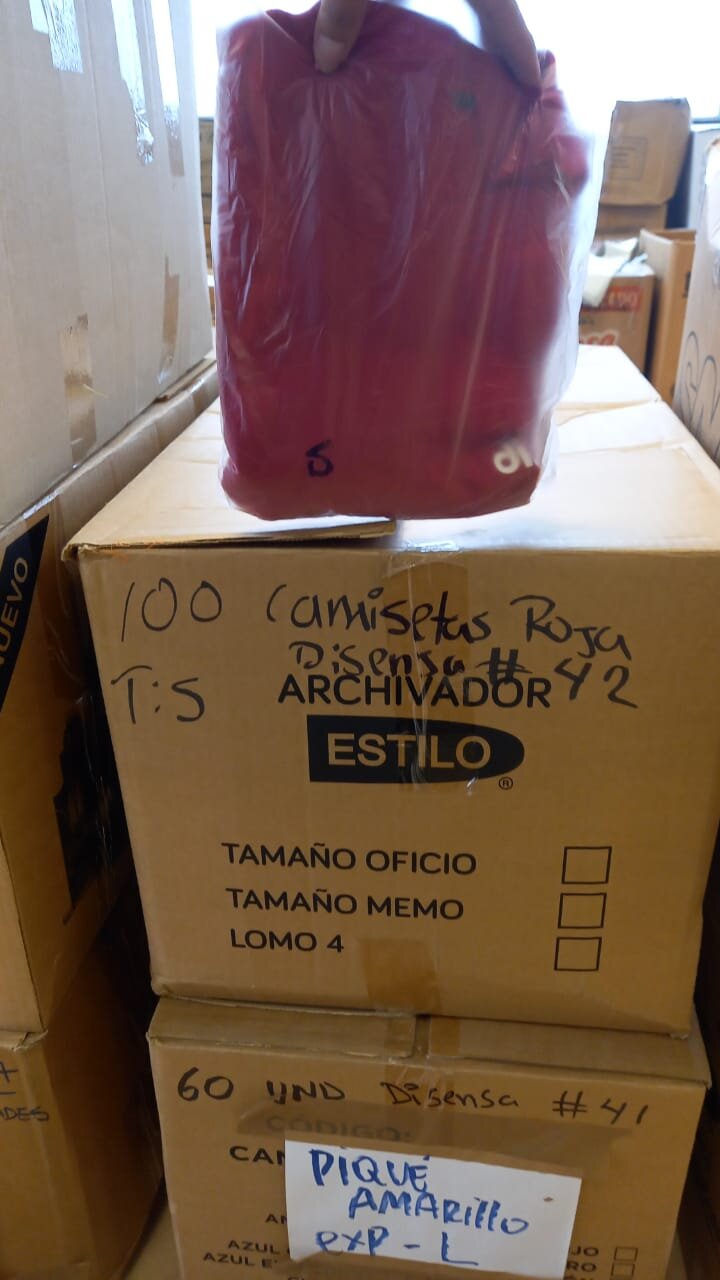 S
100 Camisetas Roja
Disensa # 42
T:S
ARCHIVADOR
ESTILO
®
TAMAÑO OFICIO
TAMAÑO MEMO
LOMO 4
60 UND Disensa #41
CÓDIGO:
PIQUÉ
AMARILLO
exp - L
AZUL